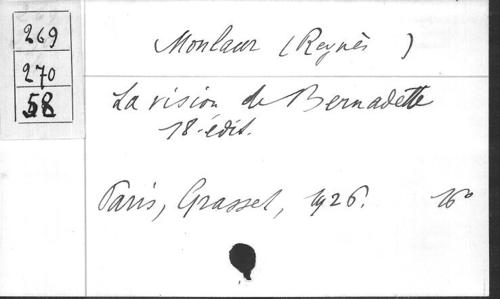 269
270
58
Monlaur (Reynès )
La vision de Bernadette
18e édit.
Paris, Grasset, 1926. 16°